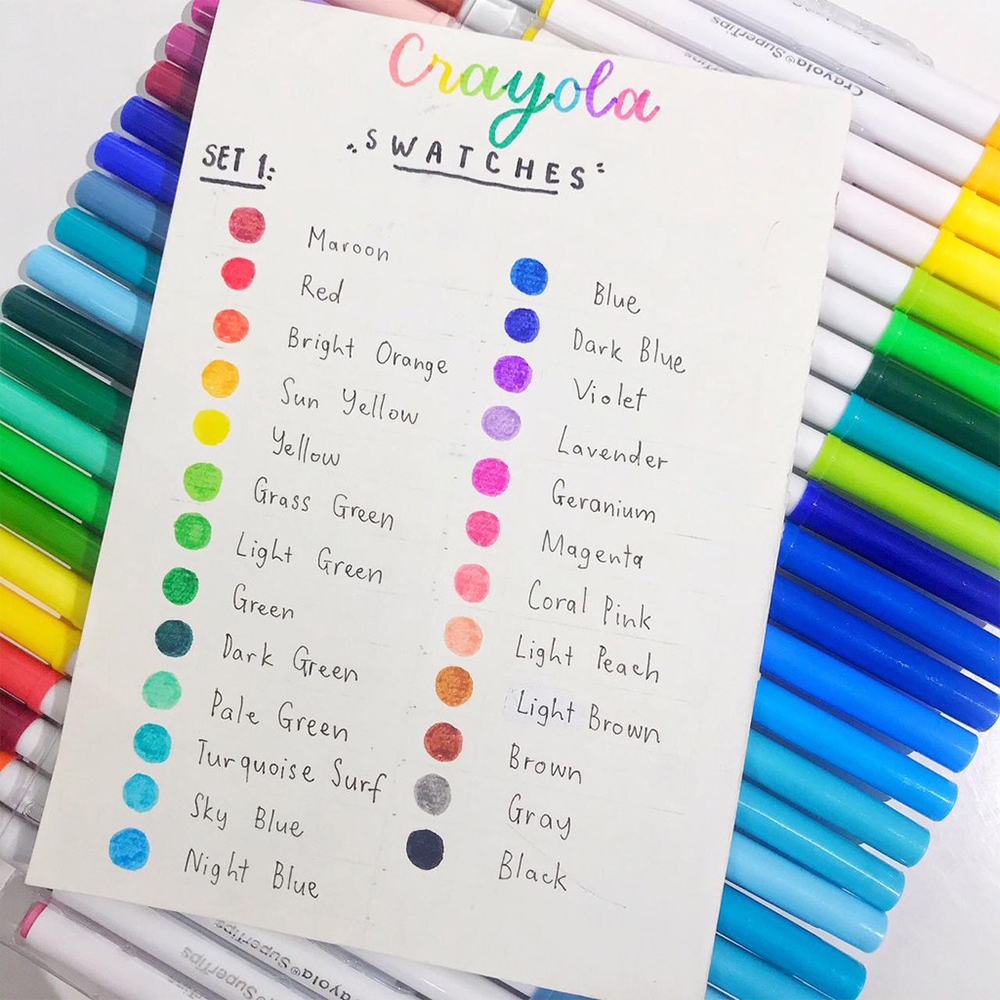 Crayola® SuperTips
Crayola® SuperTips
Crayola
SWATCHES
SET 1:
Maroon
Red
Bright Orange
Sun Yellow
Yellow
Grass Green
Light Green
Green
Dark Green
Pale Green
Turquoise Surf
Sky Blue
Night Blue
Blue
Dark Blue
Violet
Lavender
Geranium
Magenta
Coral Pink
Light Peach
Light Brown
Brown
Gray
Black
Crayola® SuperTips
SuperTips